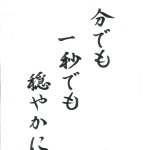 分でも
一秒でも
穏やかに